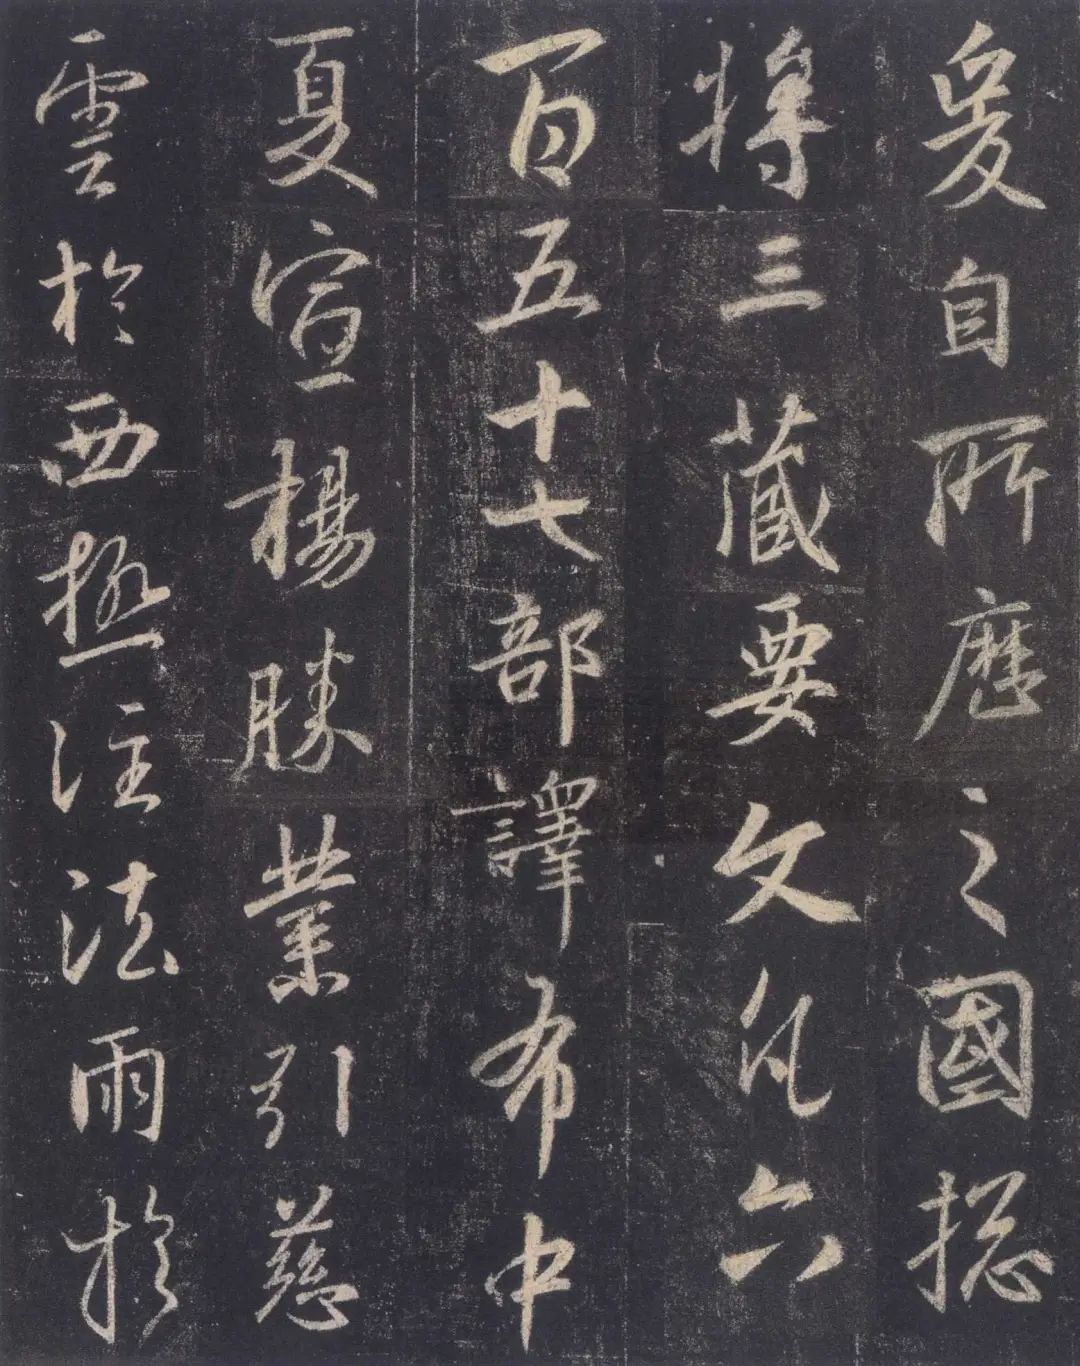 爰自所歷之國揔
將三藏要文凡六
百五十七部譯布中
夏宣楊勝業引慈
雲於西極注法雨於